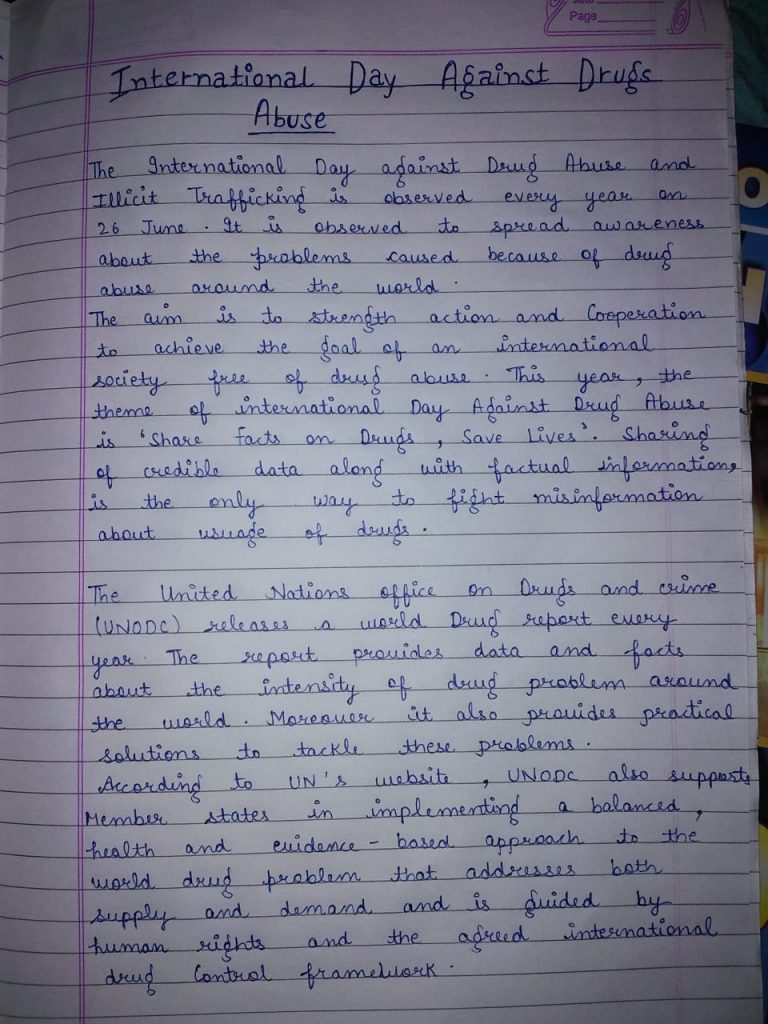 Page
International Day Against Drugs
Abuse
The International Day against Drug Abuse and
Illicit Trafficking is observed every year on
26 June. It is observed to spread awareness
about the problems caused because of drug
abuse around the world.
The aim is to strength action and Cooperation
to achieve the goal of an international
society free of drug abuse. This year, the
theme of international Day Against Drug Abuse
is 'Share facts on Drugs, Save Lives'. Sharing
of credible data along with factual information,
is the only way to fight misinformation
about usuage of drugs.
The United Nations office on Drugs and crime
(UNODC) releases a world Drug report every
year. The report provides data and facts
about the intensity of drug problem around
the world. Moreover it also provides practical
solutions to tackle these problems.
According to UN's website, UNODC also supports
Member states in implementing a balanced,
health and evidence-based approach to the
world drug problem that addresses both
supply and demand and is guided by
human rights and the agreed international
drug Control framework.